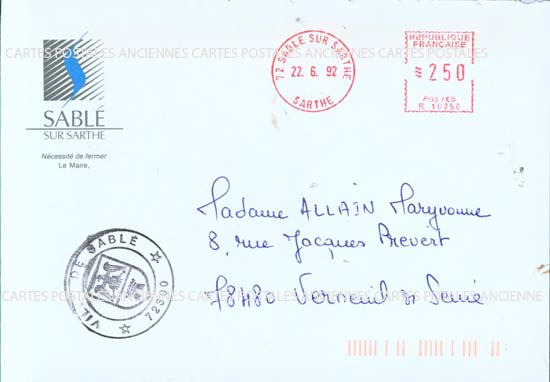 CARTES POSTALES ANCIENNES CARTES POSTALES ANCIENNES CARTES POSTALES ANCIENNES
72 SABLE SUR SARTHE
22. 6. 92
SARTHE
REPUBLIQUE
FRANCAISE
250
POSTES
R. 10250
SABLÉ
SUR SARTHE
Nécessité de fermer
Le Maire,
Madame ALLAIN Maryvonne
8, rue Jacques Prevert
78480 Verneuil s/ Seine
VILLE DE SABLÉ
72300
CARTES POSTALES ANCIENNES CARTES POSTALES ANCIENNES